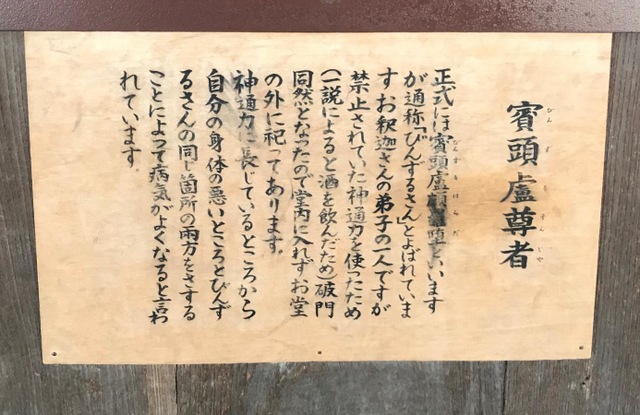 賓頭盧尊者
びんずるそんじゃ
正式には賓頭盧といいます
が通称「びんずるさん」とよばれていま
すお釈迦さんの弟子の一人ですが
禁止されていた神通力を使ったため
(一説によると酒を飲んだため)破門
同然となったので堂内に入れずお堂
の外に祀ってあります。
神通力に長じているところから
自分の身体の悪いところとびんず
るさんの同じ箇所の両方をさする
ことによって病気がよくなると言わ
れています。